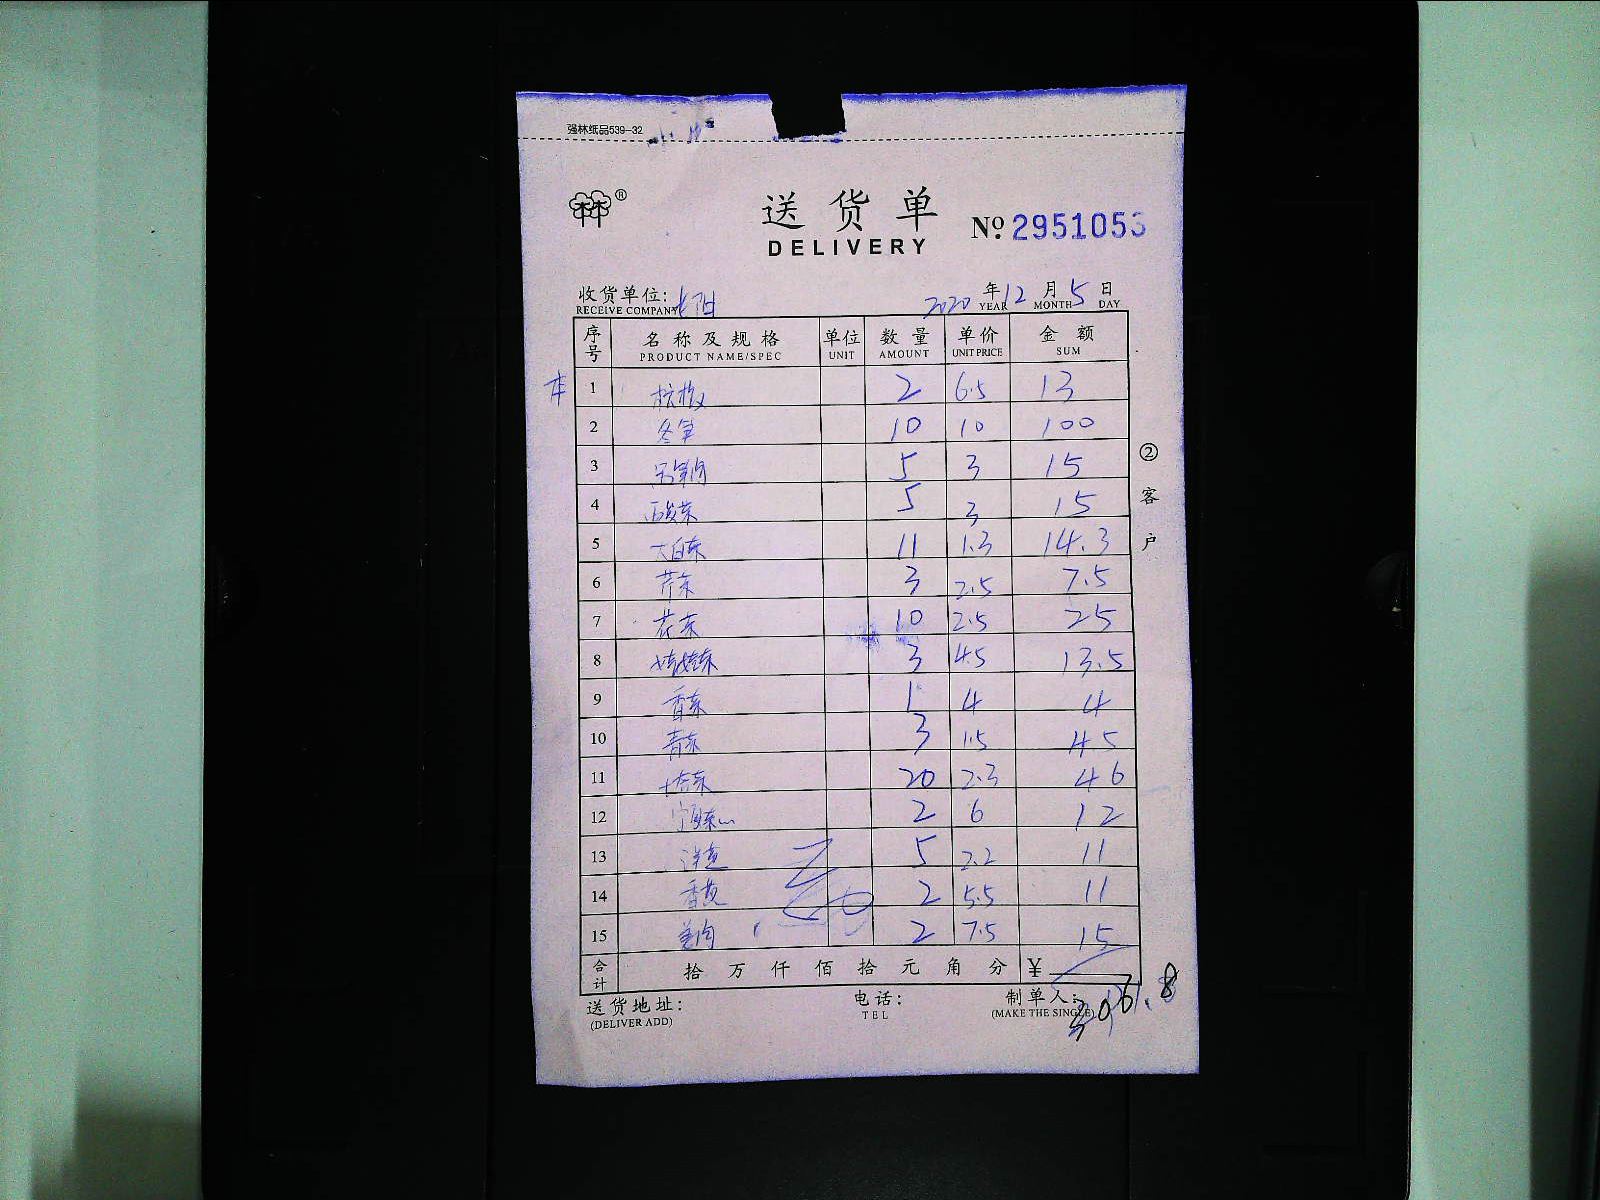 强林纸品539-32
®
送货单
DELIVERY
Nº 2951053
收货单位:
RECEIVE COMPANY
2020 年 12 月 5 日
YEAR MONTH DAY
序号 名称及规格 单位 数量 单价 金额
PRODUCT NAME/SPEC UNIT AMOUNT UNIT PRICE SUM
1 2 6.5 13
2 冬笋 10 10 100
3 5 3 15
4 酸菜 5 3 15
5 大白菜 11 1.3 14.3
6 芹菜 3 2.5 7.5
7 花菜 10 2.5 25
8 娃娃菜 3 4.5 13.5
9 香菜 1 4 4
10 青菜 3 1.5 4.5
11 20 2.3 46
12 2 6 12
13 洋芋 5 2.2 11
14 香菇 2 5.5 11
15 2 7.5 15
合计 拾 万 仟 佰 拾 元 角 分 ¥
306.8
送货地址: 电话: 制单人:
(DELIVER ADD) TEL (MAKE THE SINGLE)
②客户